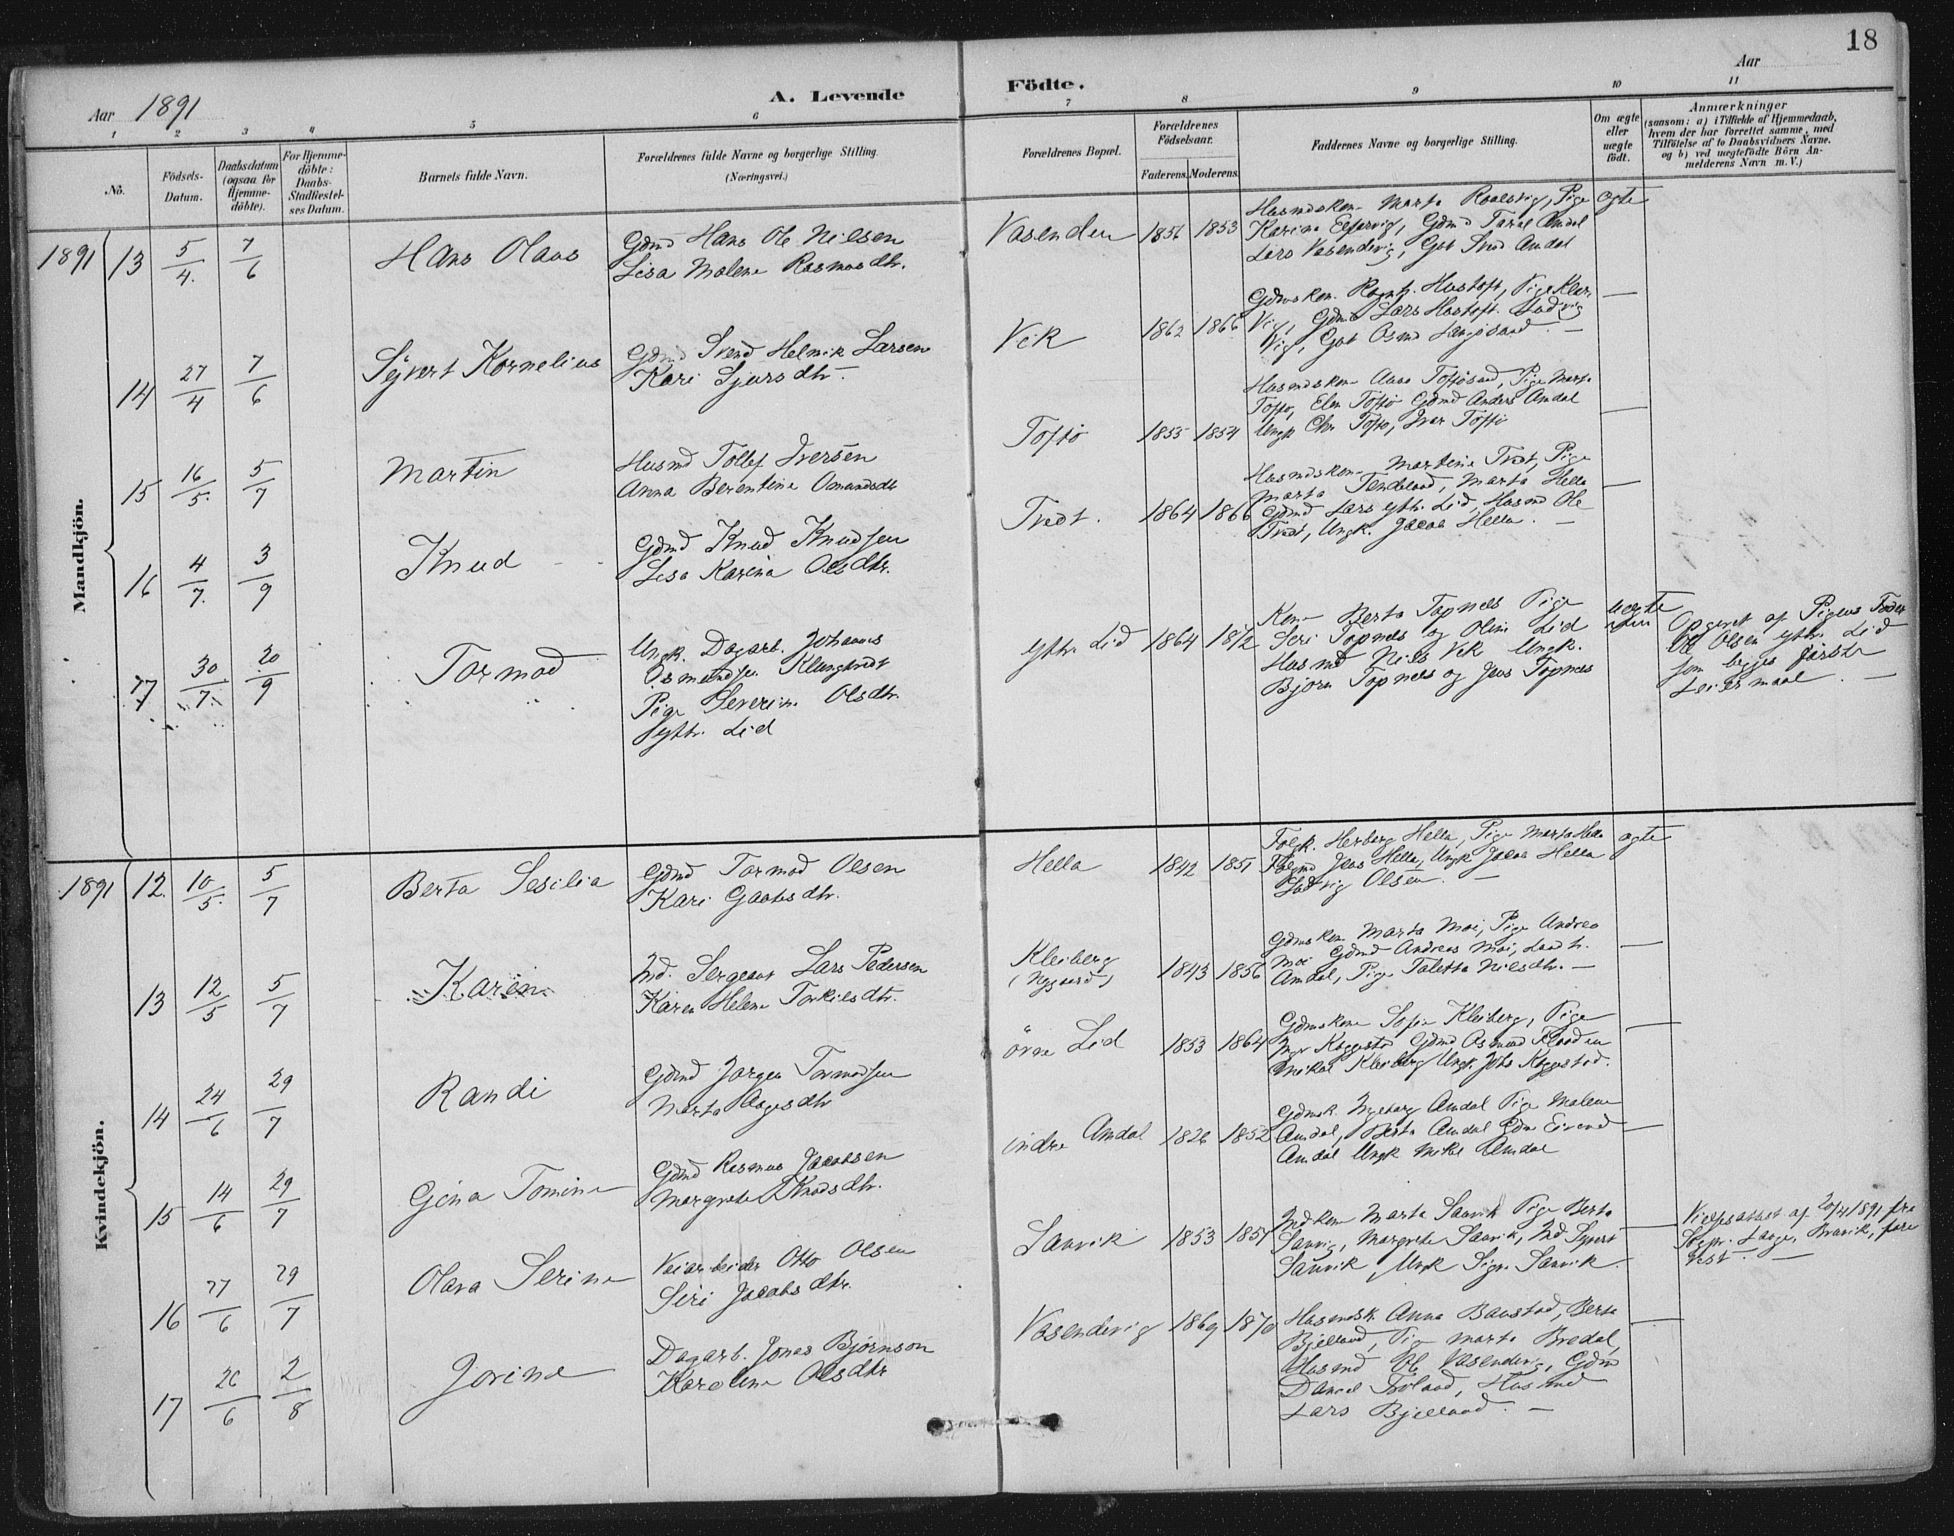 18
Aar 1891
A. Levende
Födte.
Aar
1 2 3 4 5 6 7 8 9 10 11
No.
Födsels-
Datum.
Daabsdatum
(ogsaa for
Hjemme-
döbte).
For Hjemme-
döbte:
Daabs-
Stadfæstel-
ses Datum.
Barnets fulde Navn.
Forældrenes fulde Navne og borgerlige Stilling.
(Næringsvei.)
Forældrenes Bopæl.
Forældrenes
Födselsaar.
Faderens. Moderens.
Faddernes Navne og borgerlige Stilling.
Om ægte
eller
uægte
født.
Anmærkninger
(saasom: a) i Tilfælde af Hjemmedaab,
hvem der har forrettet samme, med
Tilföielse af to Daabsvidners Navne.
og b) ved uægtefödte Börn An-
melderens Navn m. V.)
Mandkjön.
1891 13 5/4. 7/6 Hans Olaus
Gdmd Hans Ole Nilsen
Lisa Malene Rasmusdtr.
Vasenden 1856 1853
Husmdskone Marta Roalsvig, Pige
Karine Gdmd Taral Amdal
Lars Vasendvig, Gbt Amdal
ægte
14 27/4 7/6 Sjivert Kornelius
Gdmd Svend Helmik Larsen
Kari Sjursdtr.
Vik 1862 1866
Gdmskon. Hustoft, Pige
Vig, Gdmd Lars Hustoft. Ludvig
Vig, Gbt Osmd
15 16/5. 5/7 Martin
Husmd Tollef Iversen
Anna Berentine Omundsdtr
Toftø 1855 1854
Husmdskone Anna Pige Marta
Toftø, Elen Toftø Gdmd Anders Amdal
Ungk Chr Toftø, Iver Toftø
16 4/7. 3/9 Knud
Gdmd Knud Knudsen
Lisa Karina Olsdtr.
Tvedt. 1864 1866
Husmdskone Martine Tvedt, Pige
Marta Marta Hella
Gdmd Lars Ythr. Lid, Husmd Ole
Tvedt, Ungk. Jacob Hella. —
17 30/7. 20/9 Tormod
Ungk. Dagarb. Johannes
Osmundsen
Pige Severine Olsdtr.
Ythr. Lid
Ythr Lid 1864 1872
Kone Berta Topnes Pige
Seri Topnes og Olini Lid
Husmd Nils Vik Ungk.
Bjørn Topnes og Jens Topnes
uægte
Opgivet af Pigens Fader
Ole Olsen Ythr. Lid
som begges første
Leiermaal. —
Kvindekjön.
1891 12. 10/5. 5/7 Berta Sesilia
Gdmd Tormod Olsen
Kari
Hella 1842 1851
Folgk. Herborg Hella, Pige Marta Hella
Jens Hella, Ungk. Jacob Hella
Ludvig Olsen. —
ægte
13 12/5 5/7 Karen
Ind. Sergeant Lars Pedersen
Karen Helene Torkilsdtr.
Kleiberg
(Nygaard) 1843 1856
Gdmskone Marta Moi, Pige Andrea
Moi Gdmd Andreas Moi,
Amdal, Pige Taletta Nilsdtr. —
14 24/6 29/7 Randi
Gdmd Jørgen Tormodsen
Marta Aagesdtr
övre Lid 1853 1864
Gdmskone Sofie Kleiberg, Pige
Gdmd Osmund
Mikal Kleiberg Ungk. Johs Køggestad.
15 14/6 29/7 Gjina Tomine
Gdmd Rasmus Jacobsen
Margrete Knudsdtr.
indre Amdal 1826 1852
Gdmsk. Ingeborg Amdal Pige Malene
Amdal, Berta Amdal Gdm Eivend
Amdal Ungk Mikal Amdal
16 27/6 29/7 Olava Serine
Veiarbeider Otto Olsen
Seri Jacobsdtr.
Sanvik 1853 1857
Indkone Marta Sanvik Pige Berta
Sanvig, Margrete Sanvik, Ind Syvert
Sanvik, Ungk Sanvik
Vielsesattest af 20/4 1891 fra
Sogpr. Lange,
vist. —
17 26/6 2/8 Jorine
Dagarb. Jonas Bjørnson
Karoline Olsdtr
Vasendvig 1869 1870
Husmdsk. Anna Baustad, Berta
Bjelland, Pige Marta Bredal,
Husmd Ole Vasendvig, Gdm
Daniel Husmd
Lars Bjelland. —